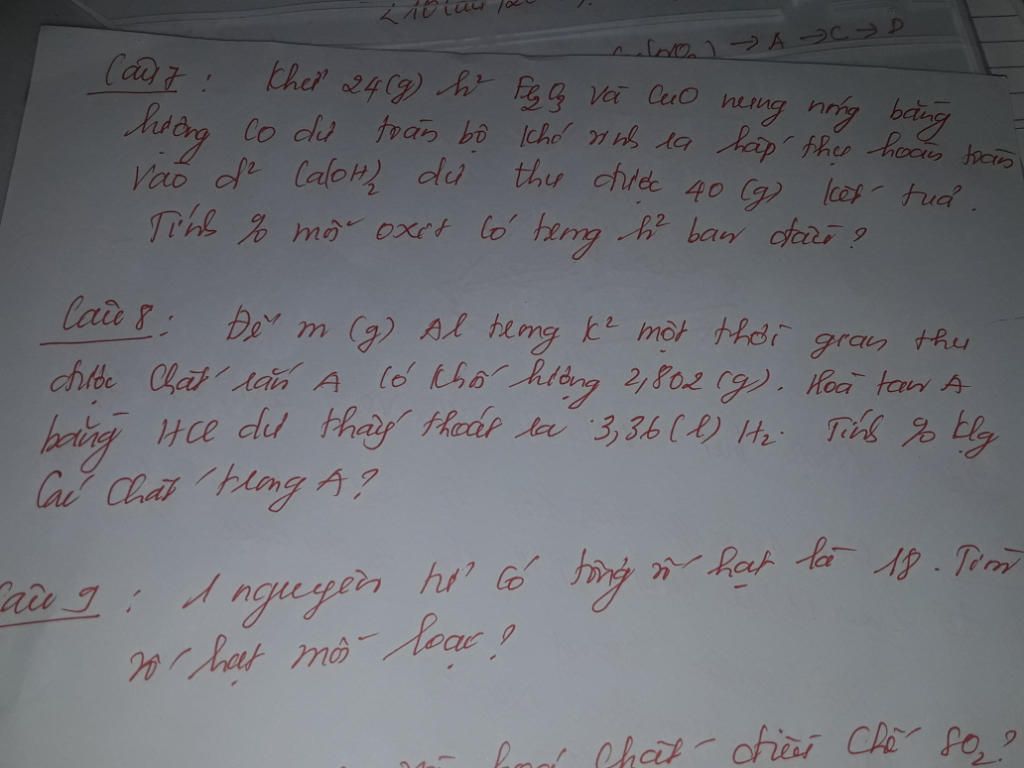 → A → C → D
Câu 7 : Khử 24(g) h² Fe2O3 và CuO nung nóng bằng
lượng CO dư toàn bộ khí sinh ra hấp thụ hoàn toàn
vào d² Ca(OH)2 dư thu được 40 (g) kết tủa.
Tính % mỗi oxit có trong h² ban đầu?
Câu 8 : Để m (g) Al trong k² một thời gian thu
được chất rắn A có khối lượng 2,802 (g). Hoà tan A
bằng HCl dư thấy thoát ra 3,36 (l) H2. Tính % klg
các chất trong A?
Câu 9 : 1 nguyên tử có tổng số hạt là 18. Tìm
số hạt mỗi loại?
hoá chất điều chế SO2?